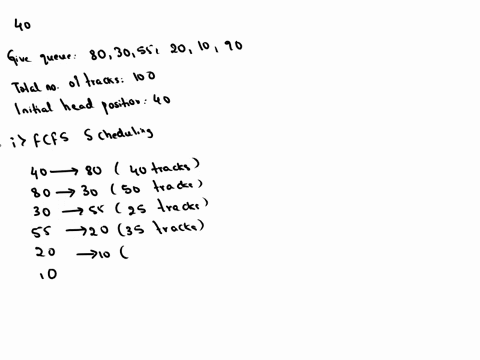 40
Give queue: 80, 30, 55, 20, 10, 90
Total no. of tracks: 100
Initial head position: 40
i> FCFS Scheduling
40 → 80 ( 40 tracks)
80 → 30 ( 50 tracks)
30 → 55 ( 25 tracks)
55 → 20 ( 35 tracks)
20 → 10 (
10